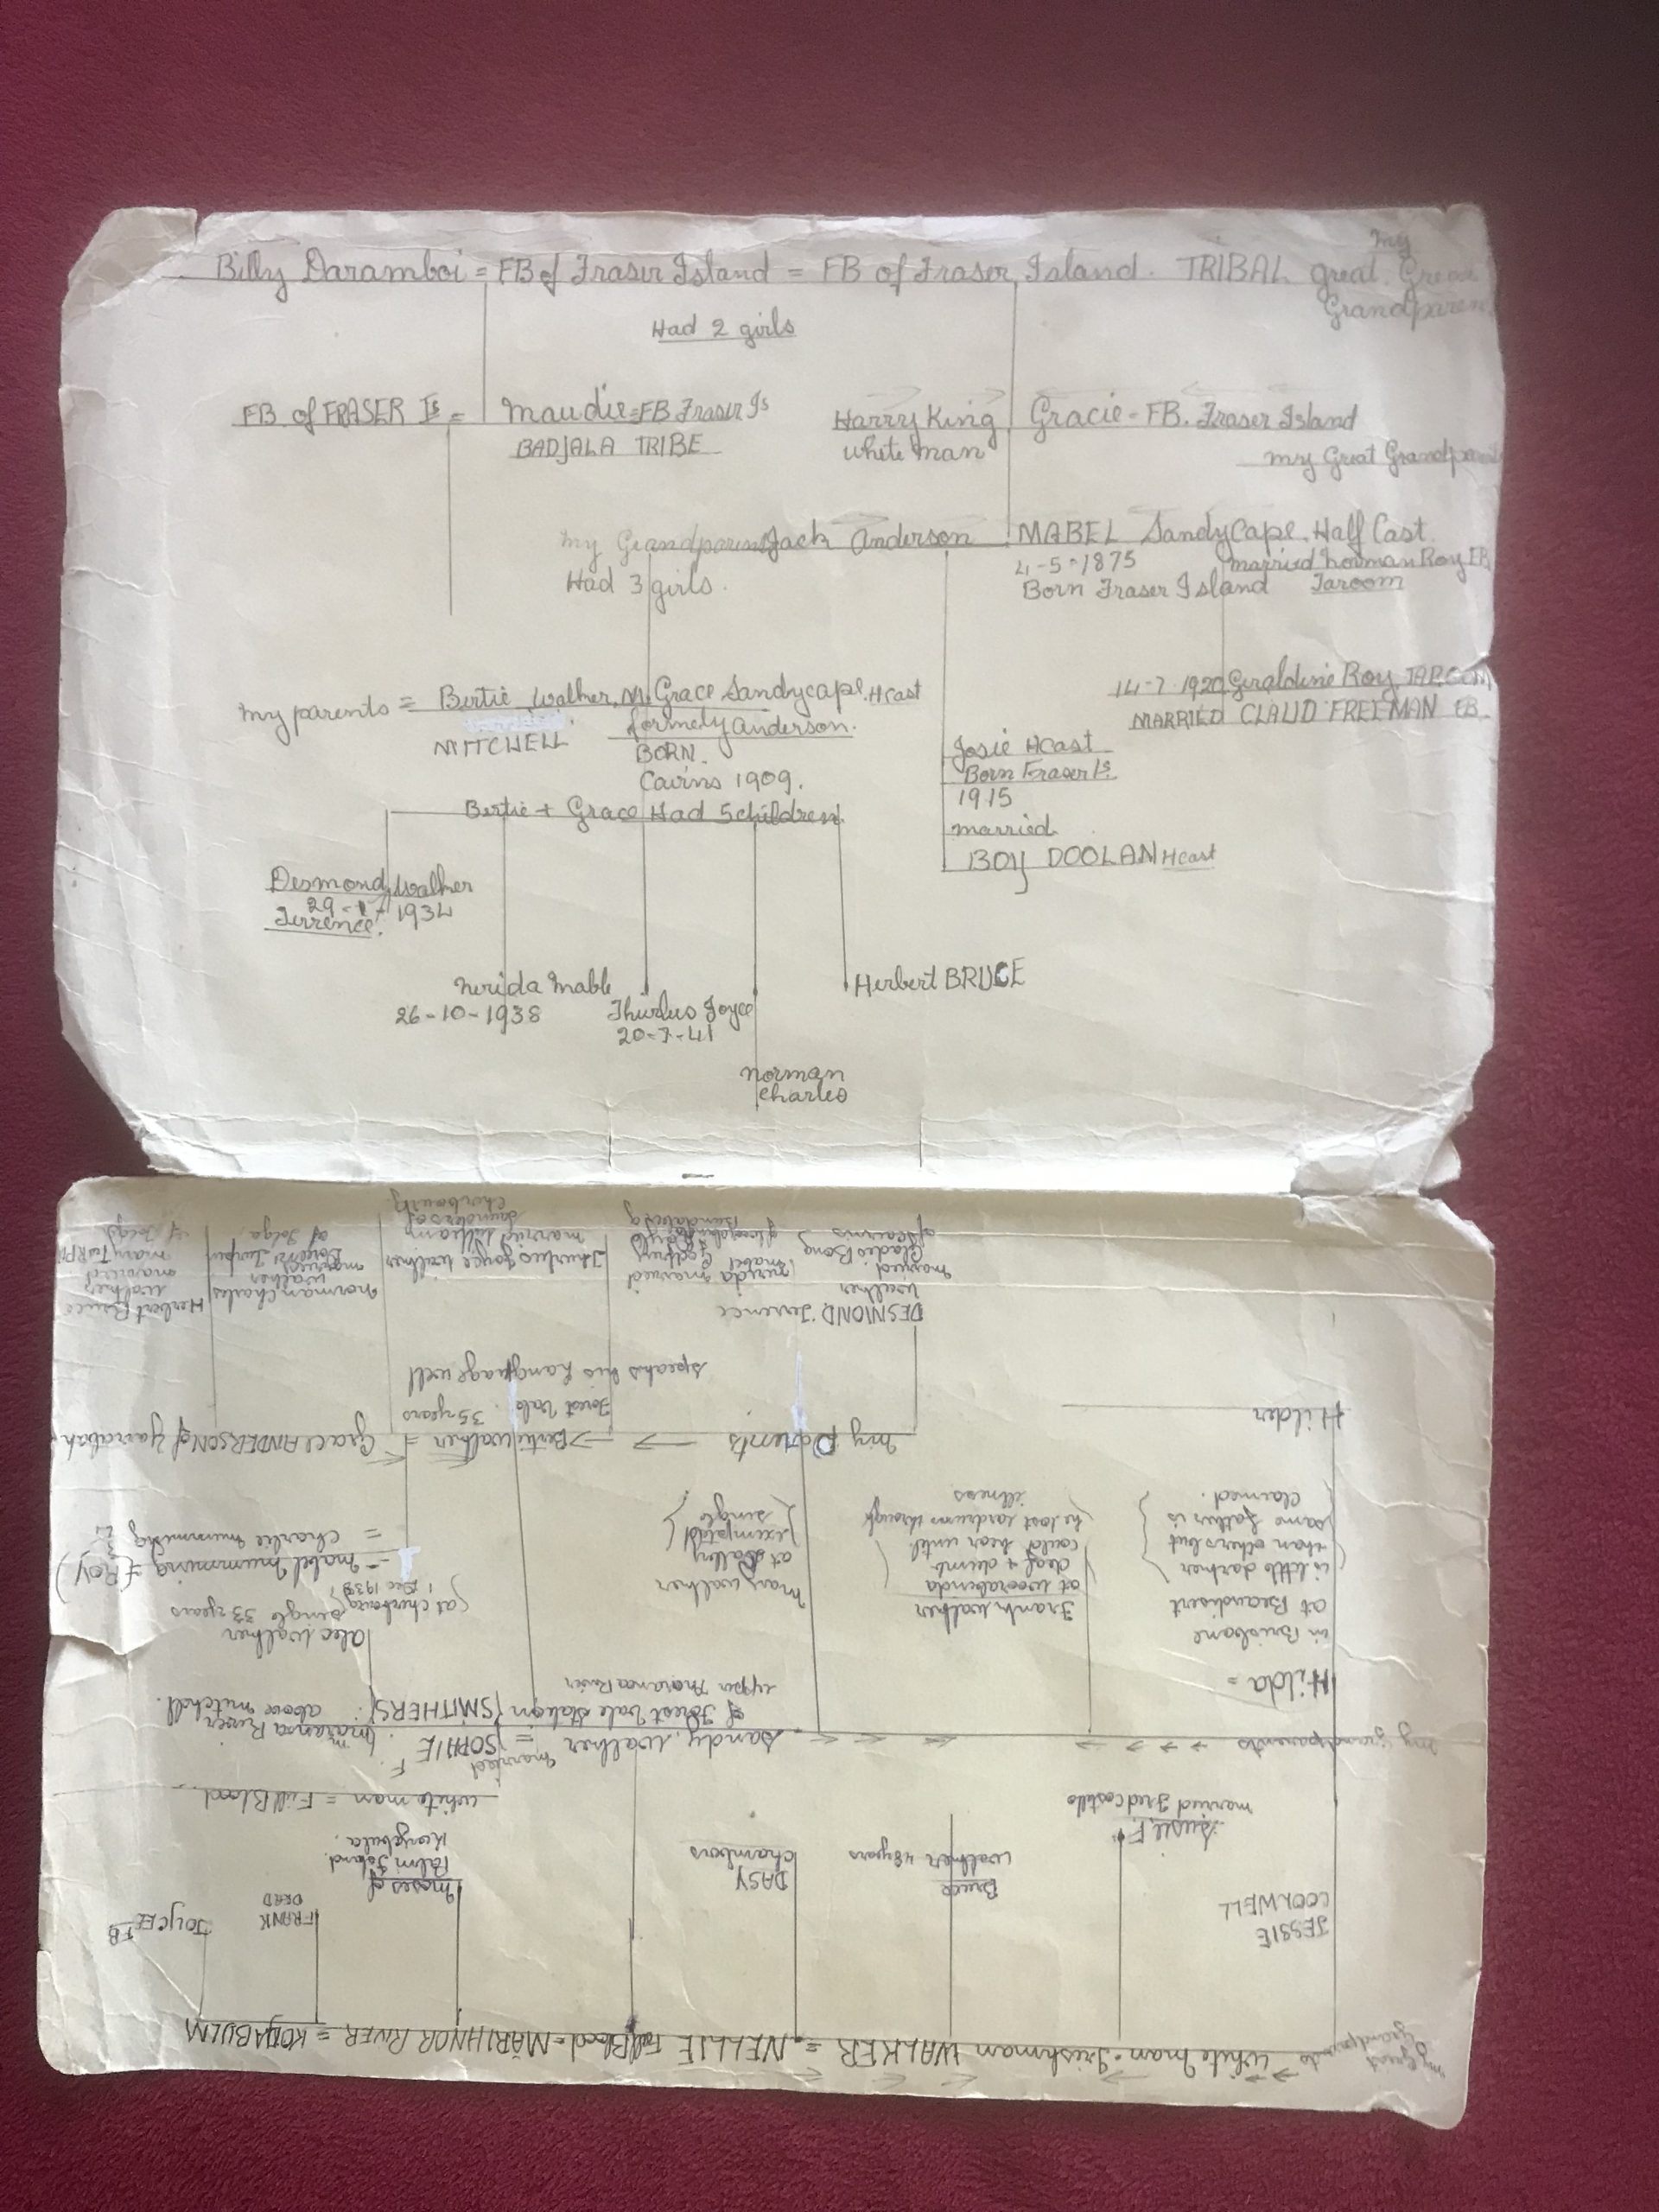 my
Billy Daramboi = FB of Fraser Island = FB of Fraser Island. TRIBAL great. Great
Grandparen
Had 2 girls
FB. of FRASER Is = Maudie = FB Fraser Is Harry King Gracie = FB. Fraser Island
BADJALA TRIBE white man my Great Grandparents
my Grandparents Jack Anderson MABEL Sandy Cape. Half Cast.
Had 3 girls. 4-5-1875 married Norman Roy FB
Born Fraser Island Taroom
my parents = Bertie Walker. M. Grace Sandycape. Hcast 14-7-1920 Geraldine Roy TAROOM
MITCHELL formely Anderson. MARRIED CLAUD FREEMAN FB
BORN. Josie Hcast
Cairns 1909. Born Fraser Is.
1915
Bertie + Grace Had 5 children married
BOY DOOLAN Hcast
Desmond Walker
29- 1934
Terrence.
Nerida Mable Herbert BRUCE
26-10-1938 Thurlus Joyce
20-7-41
Norman
Charles
my great Grandparents → white man = Irishman WALKER = NELLIE Full Blood = MARIHNOR RIVER = KONJABULM
JESSIE
COOLWELL
Susie F.
married Fred Costello
Bruce
Walker 48 years
DASY
Chambers
Moses of
Palm Island.
FRANK
DEAD
JOYCE FB
white man = Full Blood
my grandparents
Sandy. Walker = married SOPHIE F.
of Forest Vale Station (SMITHERS)
maranoa River
above mitchell.
upper maranoa River
Hilda =
in Brisbane
at Beaudisert
is little darker
than others but
same father is
claimed.
Frank Walker
at Woorabinda
deaf & dumb
could hear until
he lost eardrum through
illness
may Walker
at
exempted
single
alec Walker
single 33 years
at cherbourg
1 Dec 1938
= mabel mummins + (ROY)
= charlie mummins
Hilder
my Parents → → Bertie Walker = Grace ANDERSON of Yarrabah
Forest Vale. 35 years
speaks his Language well
DESMOND. Terrence
Walker
married
Gladeo Bong
of cairns
nerida
mabel
married
Godfrey
of
Bundaberg
Thurlus Joyce Walker
married William
Saunders of
Cherbourg
norman Charles
Walker
married
Doreen Turpin
of Tolga
Herbert Bruce
Walker
married
mary TURPIN
of Tolga